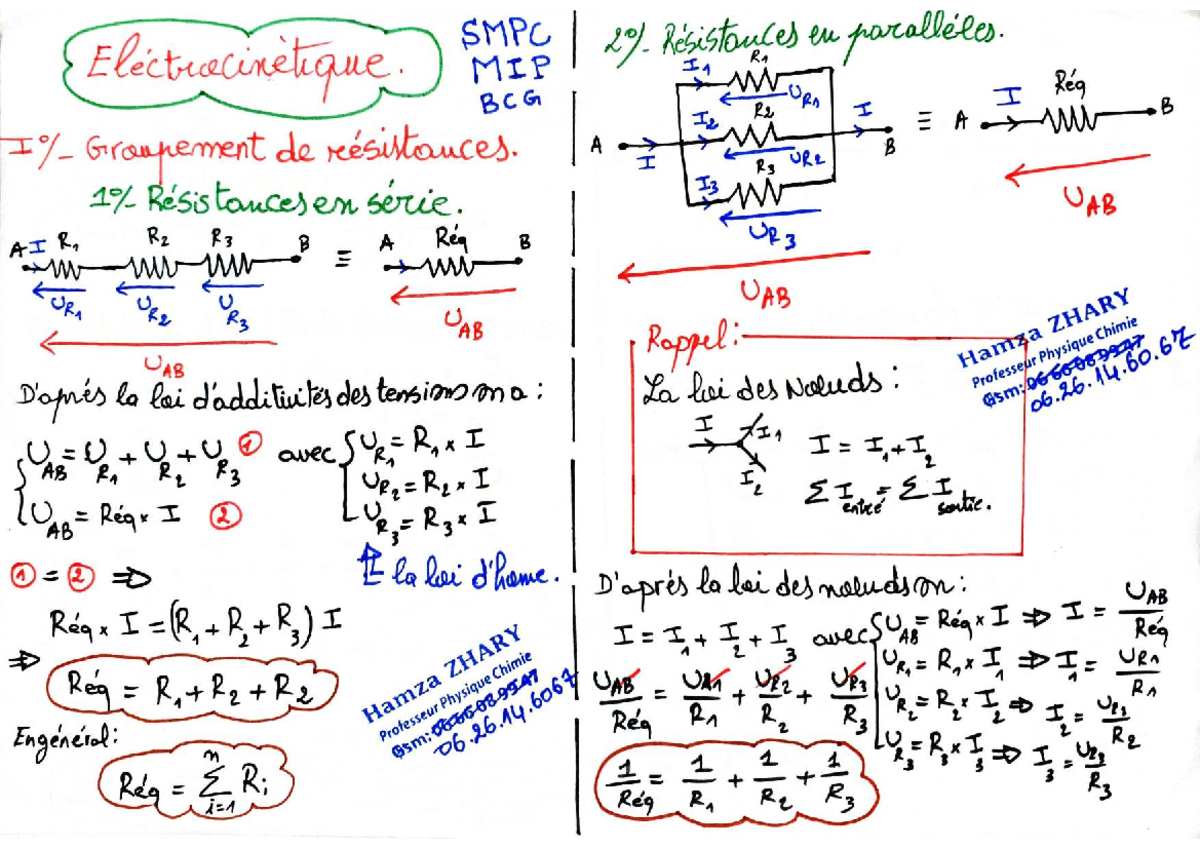 Eléctrocinètique.
SMPC
MIP
BCG
I°/- Groupement de résistances.
1°/- Résistances en série.
A I R₁ R₂ R₃ B ≡ A Réq B
U_R₁ U_R₂ U_R₃ U_AB
U_AB
D'aprés la loi d'additivités des tensions on a :
U_AB = U_R₁ + U_R₂ + U_R₃ ① avec { U_R₁ = R₁ × I
U_R₂ = R₂ × I
U_AB = Réq × I ② U_R₃ = R₃ × I
① = ② ⇒ la loi d'home.
Réq × I = (R₁ + R₂ + R₃) I
⇒ Réq = R₁ + R₂ + R₂
En général :
Réq = Σ_{i=1}^{n} R_i
Hamza ZHARY
Professeur Physique Chimie
Gsm: 06.26.14.6067
2°/- Résistances en paralléles.
I₁ R₁ U_R1
I₂ R₂ U_R2
A I I B ≡ A I Réq B
I₃ R₃ U_R3
U_AB
U_AB
Rappel :
La loi des Nœuds :
I I₁ I₂
I = I₁ + I₂
Σ I_entré = Σ I_sortie.
Hamza ZHARY
Professeur Physique Chimie
Gsm: 06.26.14.60.67
D'aprés la loi des nœuds on :
I = I₁ + I₂ + I₃ avec { U_AB = Réq × I ⇒ I = U_AB / Réq
U_R₁ = R₁ × I₁ ⇒ I₁ = U_R1 / R₁
U_AB / Réq = U_R1 / R₁ + U_R2 / R₂ + U_R3 / R₃
U_R₂ = R₂ × I₂ ⇒ I₂ = U_R₂ / R₂
U_R₃ = R₃ × I₃ ⇒ I₃ = U_R3 / R₃
1/Réq = 1/R₁ + 1/R₂ + 1/R₃